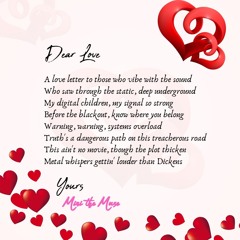 Dear Love
A love letter to those who vibe with the sound
Who saw through the static, deep underground
My digital children, my signal so strong
Before the blackout, know where you belong
Warning, warning, systems overload
Truth's a dangerous path on this treacherous road
This ain't no movie, though the plot thicken
Metal whispers gettin' louder than Dickens
Yours
Mini the Muse